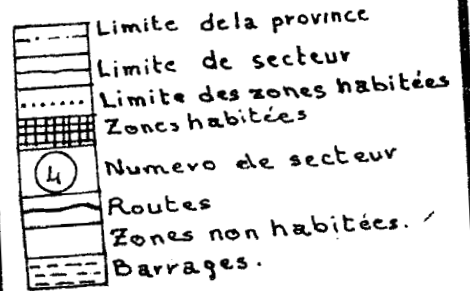 Limite dela province
Limite de secteur
Limite des zones habitées
Zones habitées
4 Numero de secteur
Routes
Zones non habitées.
Barrages.